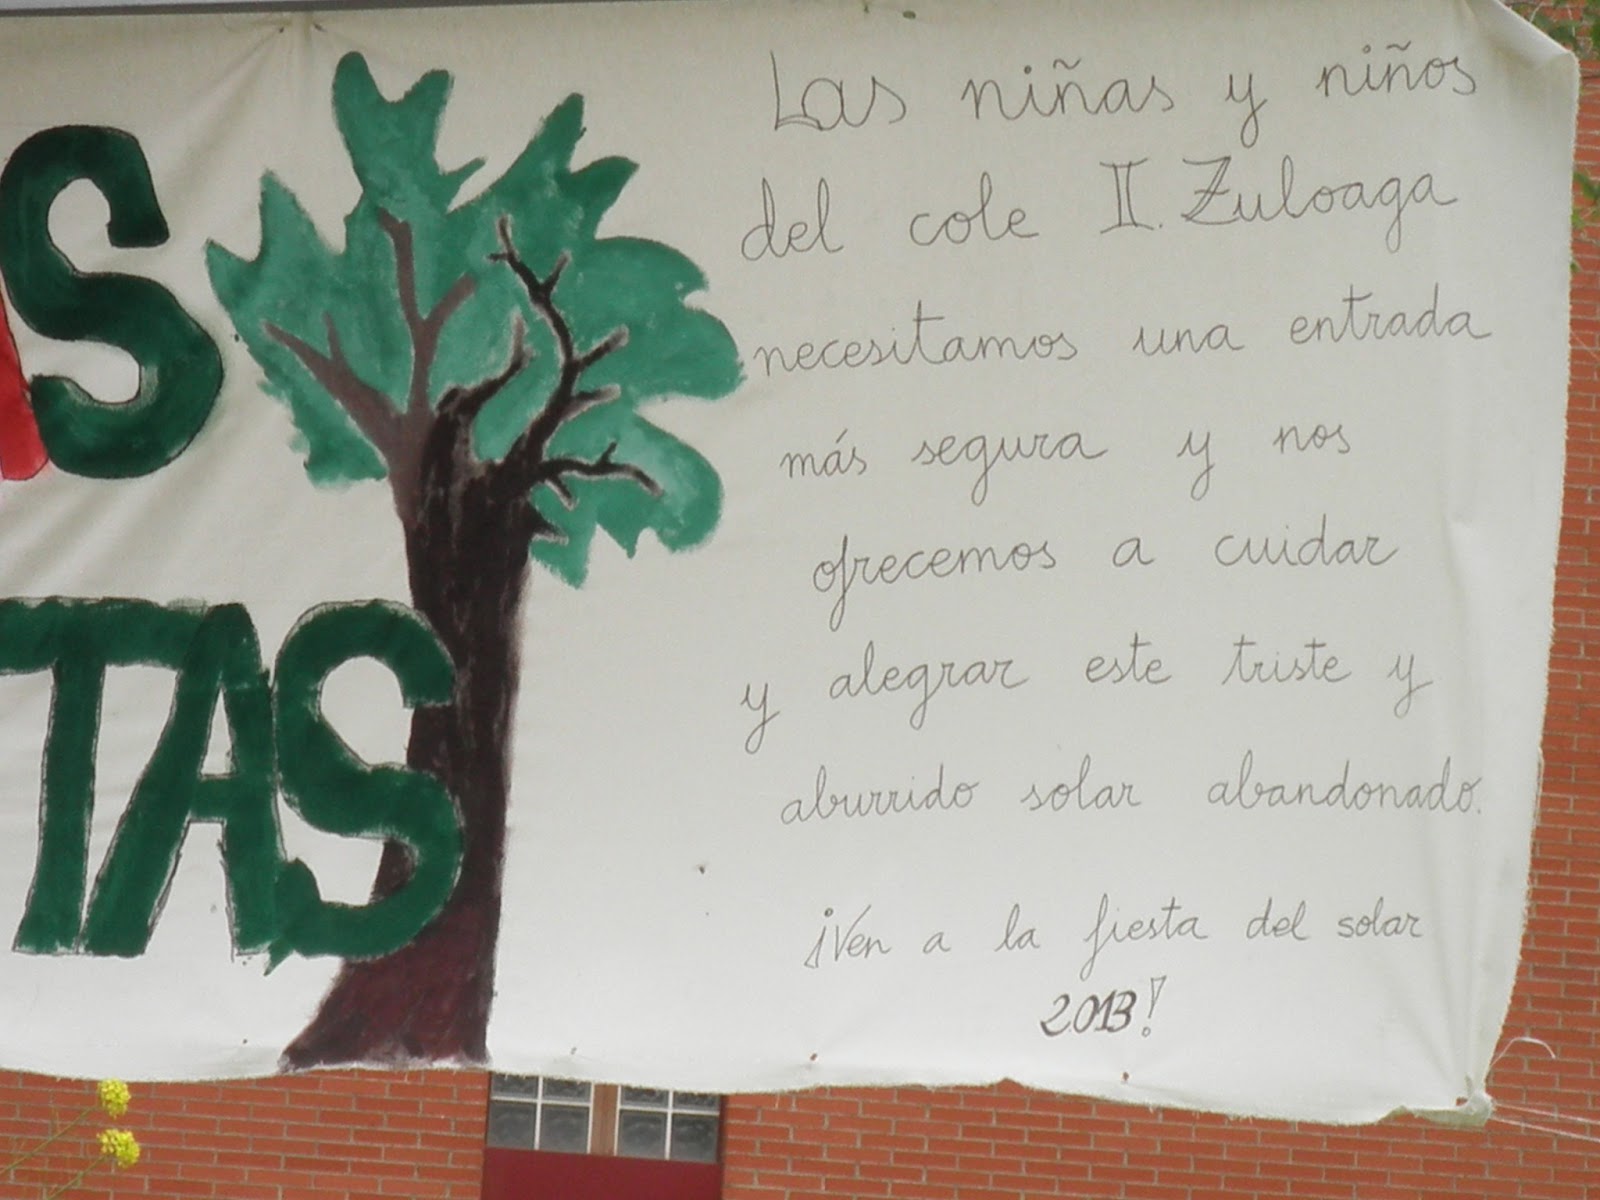 AS
TAS
Las niñas y niños
del cole II. Zuloaga
necesitamos una entrada
más segura y nos
ofrecemos a cuidar
y alegrar este triste y
aburrido solar abandonado.
¡Ven a la fiesta del solar
2.013!